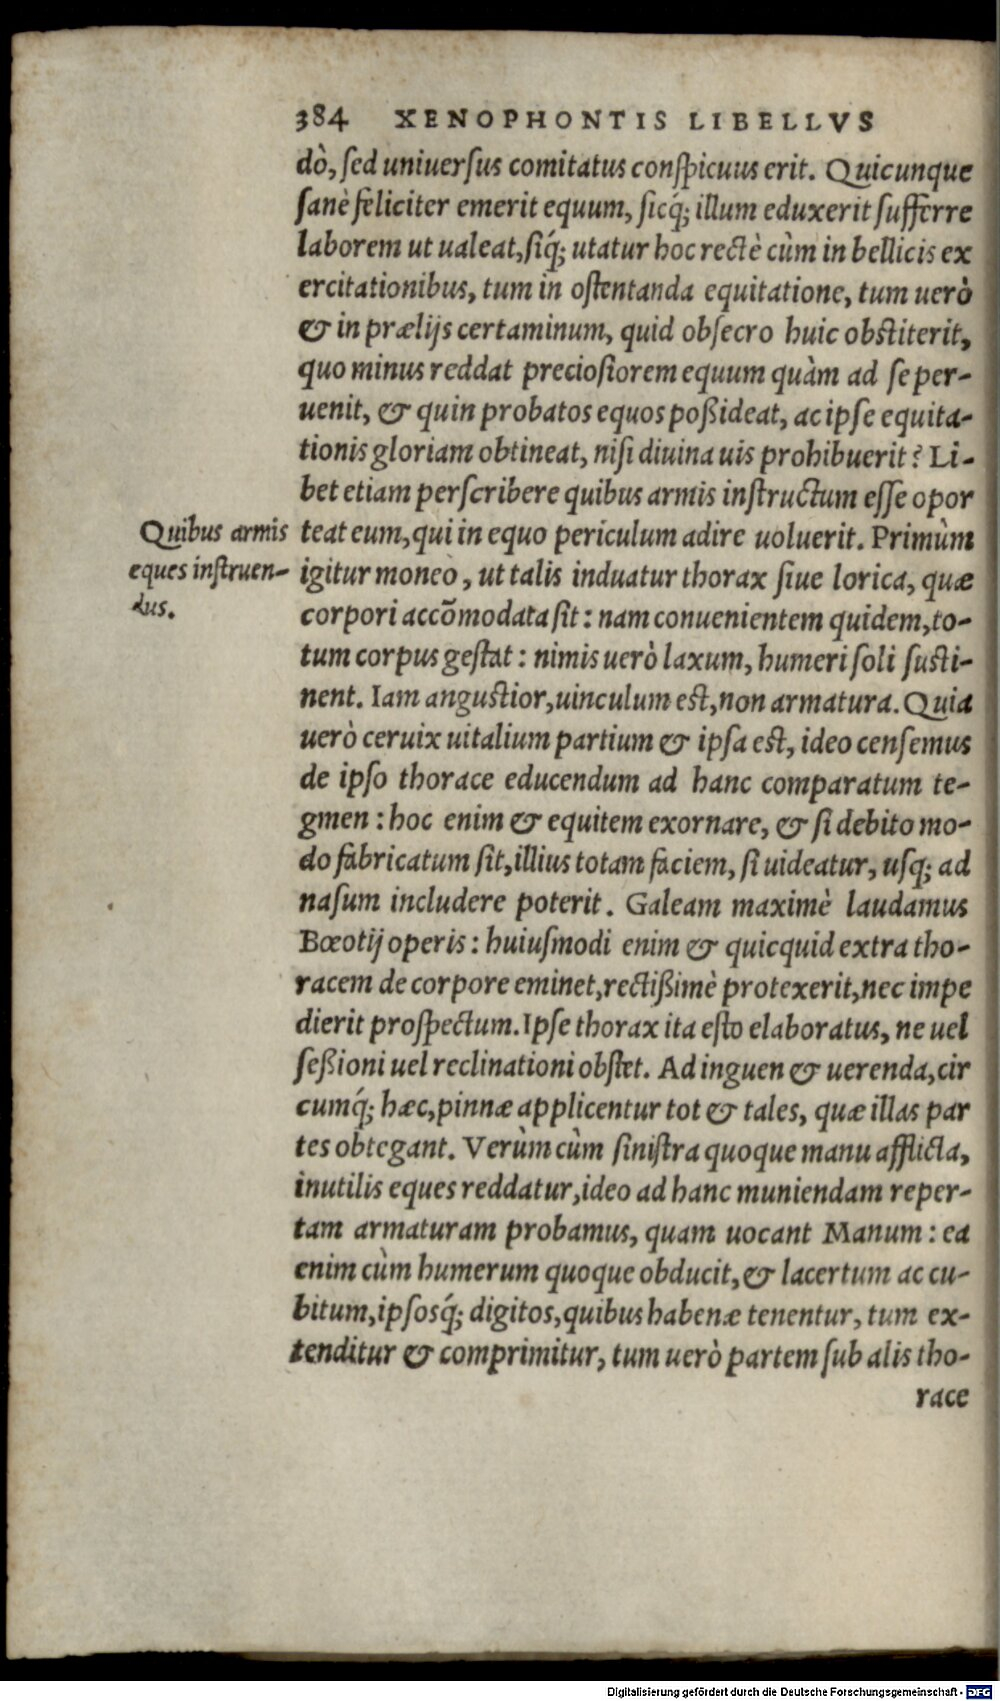 384 XENOPHONTIS LIBELLVS
dò, ſed uniuerſus comitatus conſpicuus erit. Quicunque
ſanè feliciter emerit equum, ſicq́; illum eduxerit ſufferre
laborem ut ualeat, ſiq́; utatur hoc rectè cùm in bellicis ex
ercitationibus, tum in oſtentanda equitatione, tum uerò
& in prælijs certaminum, quid obſecro huic obſtiterit,
quo minus reddat precioſiorem equum quàm ad ſe per-
uenit, & quin probatos equos poßideat, ac ipſe equita-
tionis gloriam obtineat, niſi diuina uis prohibuerit? Li-
bet etiam perſcribere quibus armis inſtructum eſſe opor
Quibus armis
eques inſtruen-
dus.
teat eum, qui in equo periculum adire uoluerit. Primùm
igitur moneo, ut talis induatur thorax ſiue lorica, quæ
corpori accõmodata ſit: nam conuenientem quidem, to-
tum corpus geſtat: nimis uerò laxum, humeri ſoli ſuſti-
nent. Iam anguſtior, uinculum eſt, non armatura. Quia
uerò ceruix uitalium partium & ipſa eſt, ideo cenſemus
de ipſo thorace educendum ad hanc comparatum te-
gmen: hoc enim & equitem exornare, & ſi debito mo-
do fabricatum ſit, illius totam faciem, ſi uideatur, uſq; ad
naſum includere poterit. Galeam maximè laudamus
Bœotij operis: huiuſmodi enim & quicquid extra tho-
racem de corpore eminet, rectißimè protexerit, nec impe
dierit proſpectum. Ipſe thorax ita eſto elaboratus, ne uel
ſeßioni uel reclinationi obſtet. Ad inguen & uerenda, cir
cumq́; hæc, pinnæ applicentur tot & tales, quæ illas par
tes obtegant. Verùm cùm ſiniſtra quoque manu afflicta,
inutilis eques reddatur, ideo ad hanc muniendam reper-
tam armaturam probamus, quam uocant Manum: ea
enim cùm humerum quoque obducit, & lacertum ac cu-
bitum, ipſosq́; digitos, quibus habenæ tenentur, tum ex-
tenditur & comprimitur, tum uerò partem ſub alis tho-
race
Digitalisierung gefördert durch die Deutsche Forschungsgemeinschaft - DFG